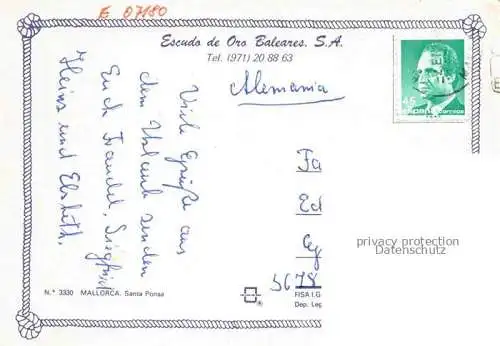 E 07180
Escudo de Oro Baleares. S.A.
Tel. (971) 20 88 63
Alemania
45
Viele Grüße aus
dem Urlaub senden
Euch Traudel, Siegfried
Heinz und Elsbeth.
5678
privacy protection
Datenschutz
N.º 3330 MALLORCA. Santa Ponsa
FISA I.G.
Dep. Leg